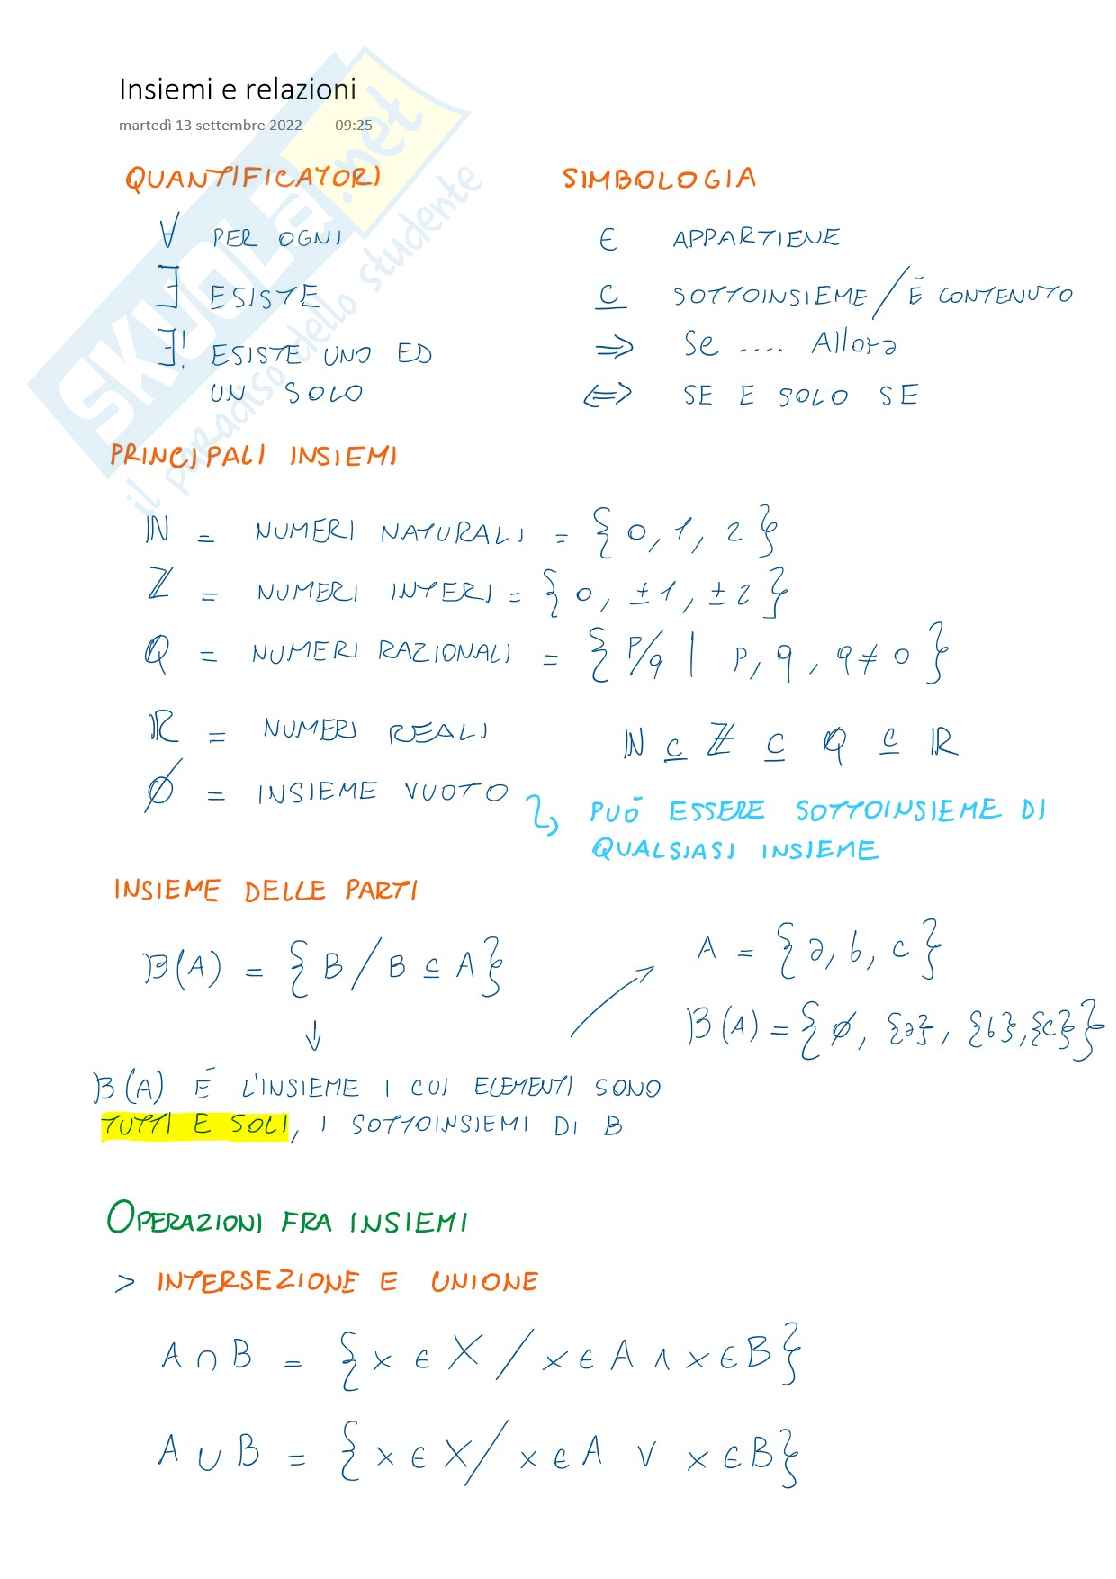 Insiemi e relazioni
martedì 13 settembre 2022 09:25
SKUOLA.net
il paradiso dello studente
QUANTIFICATORI
∀ PER OGNI
∃ ESISTE
∃! ESISTE UNO ED
UN SOLO
SIMBOLOGIA
∈ APPARTIENE
⊆ SOTTOINSIEME / È CONTENUTO
⇒ Se .... Allora
⇔ SE E SOLO SE
PRINCIPALI INSIEMI
ℕ = NUMERI NATURALI = {0, 1, 2}
ℤ = NUMERI INTERI = {0, ±1, ±2}
ℚ = NUMERI RAZIONALI = {P/q | P, q, q ≠ 0}
ℝ = NUMERI REALI
ℕ ⊆ ℤ ⊆ ℚ ⊆ ℝ
∅ = INSIEME VUOTO
PUÒ ESSERE SOTTOINSIEME DI
QUALSIASI INSIEME
INSIEME DELLE PARTI
B(A) = {B / B ⊆ A}
A = {a, b, c}
B(A) = {∅, {a}, {b}, {c}}
B(A) È L'INSIEME I CUI ELEMENTI SONO
TUTTI E SOLI, I SOTTOINSIEMI DI B
OPERAZIONI FRA INSIEMI
> INTERSEZIONE E UNIONE
A ∩ B = {x ∈ X / x ∈ A ∧ x ∈ B}
A ∪ B = {x ∈ X / x ∈ A ∨ x ∈ B}